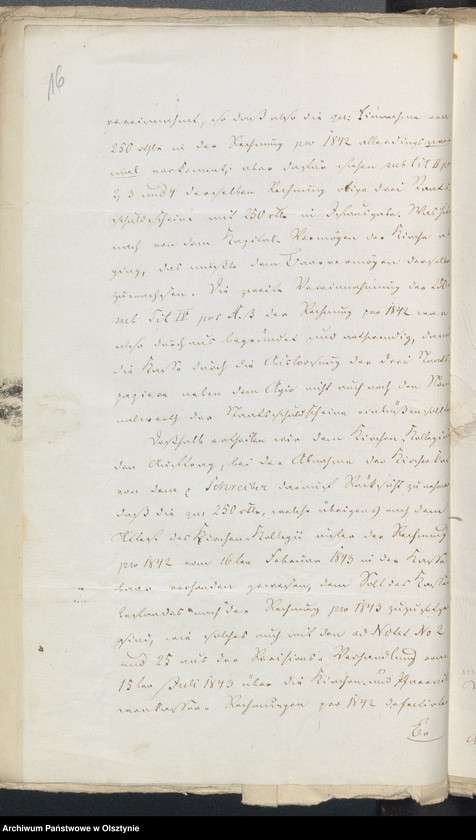 16
vereinnahmt, so daß also die qu: Einnahme von
250 rthlr in der Rechnung pro 1842 allerdings zwei
mal vorkommt; aber dafür stehen sub tit II pos
2, 3 und 4 derselben Rechnung obige drei Staats-
schuldscheine mit 250 rtlr in Ausgabe. Was hier
nach von dem Kapitals-Vermögen der Kirche ab
ging, das mußte dem Baarvermögen derselben
zuwachsen. Die zweite Vereinnahmung der 250
sub Tit IV pos der Rechnung pro 1842 war
also durchaus begründet und nothwendig, denn
die Kasse durch die Ausloosung der drei Staats
papiere neben dem Agio nicht auch noch den No
malwerth der Staatsschuldscheine einbüßen sollte
Deshalb ertheilen wir dem Kirchen-Kollegio
den Auftrag, bei der Abnahme der Kirchen
von dem p Schreiber darauf Rücksicht zu nehmen
daß die qu: 250 rtlr, welche übrigens nach dem
Attest des Kirchen-Kollegii unter der Rechnung
pro 1842 vom 16ten Februar 1843 in der Kasse
baar vorhanden gewesen, dem Soll des Kassen
bestandes nach der Rechnung pro 1843 zuzusetzen
sind, wie solches auch mit den ad Notat No 2
und 25 aus der Revisions-Verhandlung vom
15ten Juli 1843 über die Kirchen- und Pfarr
Rechnungen pro 1842 defectirten
Archiwum Państwowe w Olsztynie